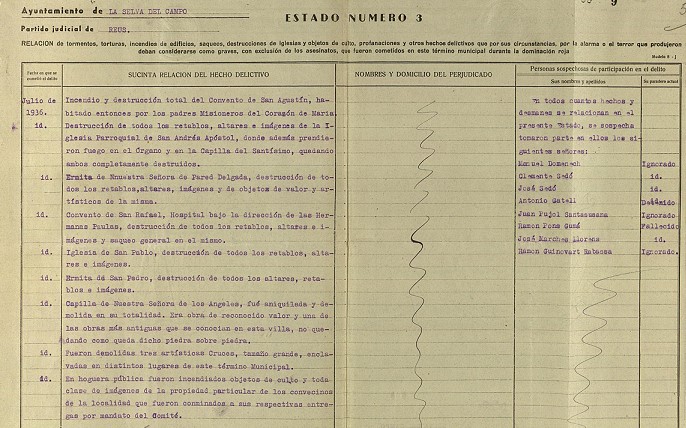 Ayuntamiento de LA SELVA DEL CAMPO
ESTADO NUMERO 3
Partido judicial de REUS.
RELACION de tormentos, torturas, incendios de edificios, saqueos, destrucciones de iglesias y objetos de culto, profanaciones y otros hechos delictivos que por sus circunstancias, por la alarma o el terror que produjeron
deban considerarse como graves, con exclusión de los asesinatos, que fueron cometidos en este término municipal durante la dominación roja
Fecha en que se cometió el delito
SUCINTA RELACION DEL HECHO DELICTIVO
NOMBRES Y DOMICILIO DEL PERJUDICADO
Personas sospechosas de participación en el delito
Sus nombres y apellidos
Su paradero actual
Julio de
1936.
Incendio y destrucción total del Convento de San Agustín, ha-
bitado entonces por los padres Misioneros del Corazón de María
id. Destrucción de todos los retablos, altares e imágenes de la I-
glesia Parroquial de San Andrés Apóstol, donde además prendie-
ron fuego en el Organo y en la Capilla del Santísimo, quedando
ambos completamente destruidos.
id. Ermita de Nnuestra Señora de Pared Delgada, destrucción de to-
dos los retablos,altares, imágenes y de objetos de valor y ar-
tísticos de la misma.
id. Convento de San Rafael, Hospital bajo la dirección de las Her-
manas Paulas, destrucción de todos los retablos, altares e i-
mágenes y saqueo general en el mismo.
id. Iglesia de San Pablo, destrucción de todos los retablos, alta-
res e imágenes.
id. Ermita de San Pedro, destrucción de todos los altares, reta-
blos e imágenes.
id. Capilla de Nuestra Señora de los Angeles, fué aniquilada y de-
molida en su totalidad. Era obra de reconocido valor y una de
las obras más antiguas que se conocían en esta villa, no que-
dando como queda dicho piedra sobre piedra.
id. Fueron demolidas tres artísticas Cruces, tamaño grande, encla-
vadas en distintos lugares de este término Municipal.
id. En hoguera pública fueron incendiados objetos de culto y toda
clase de imágenes de la propiedad particular de los convecinos
de la localidad que fueron conminados a sus respectivas entre-
gas por mandato del Comité.
En todos cuantos hechos y
desmanes se relacionan en el
presente Estado, se sospecha
tomaron parte en ellos los si-
guientes señores:
Manuel Domenech Ignorado
Clemente Sedó id.
José Sedó id.
Antonio Gatell Detenido
Juan Pujol Santasusana Ignorado
Ramon Pons Gumá Fallecido
José Marches Llorens id.
Ramon Guinovart Rabassa Ignorado.